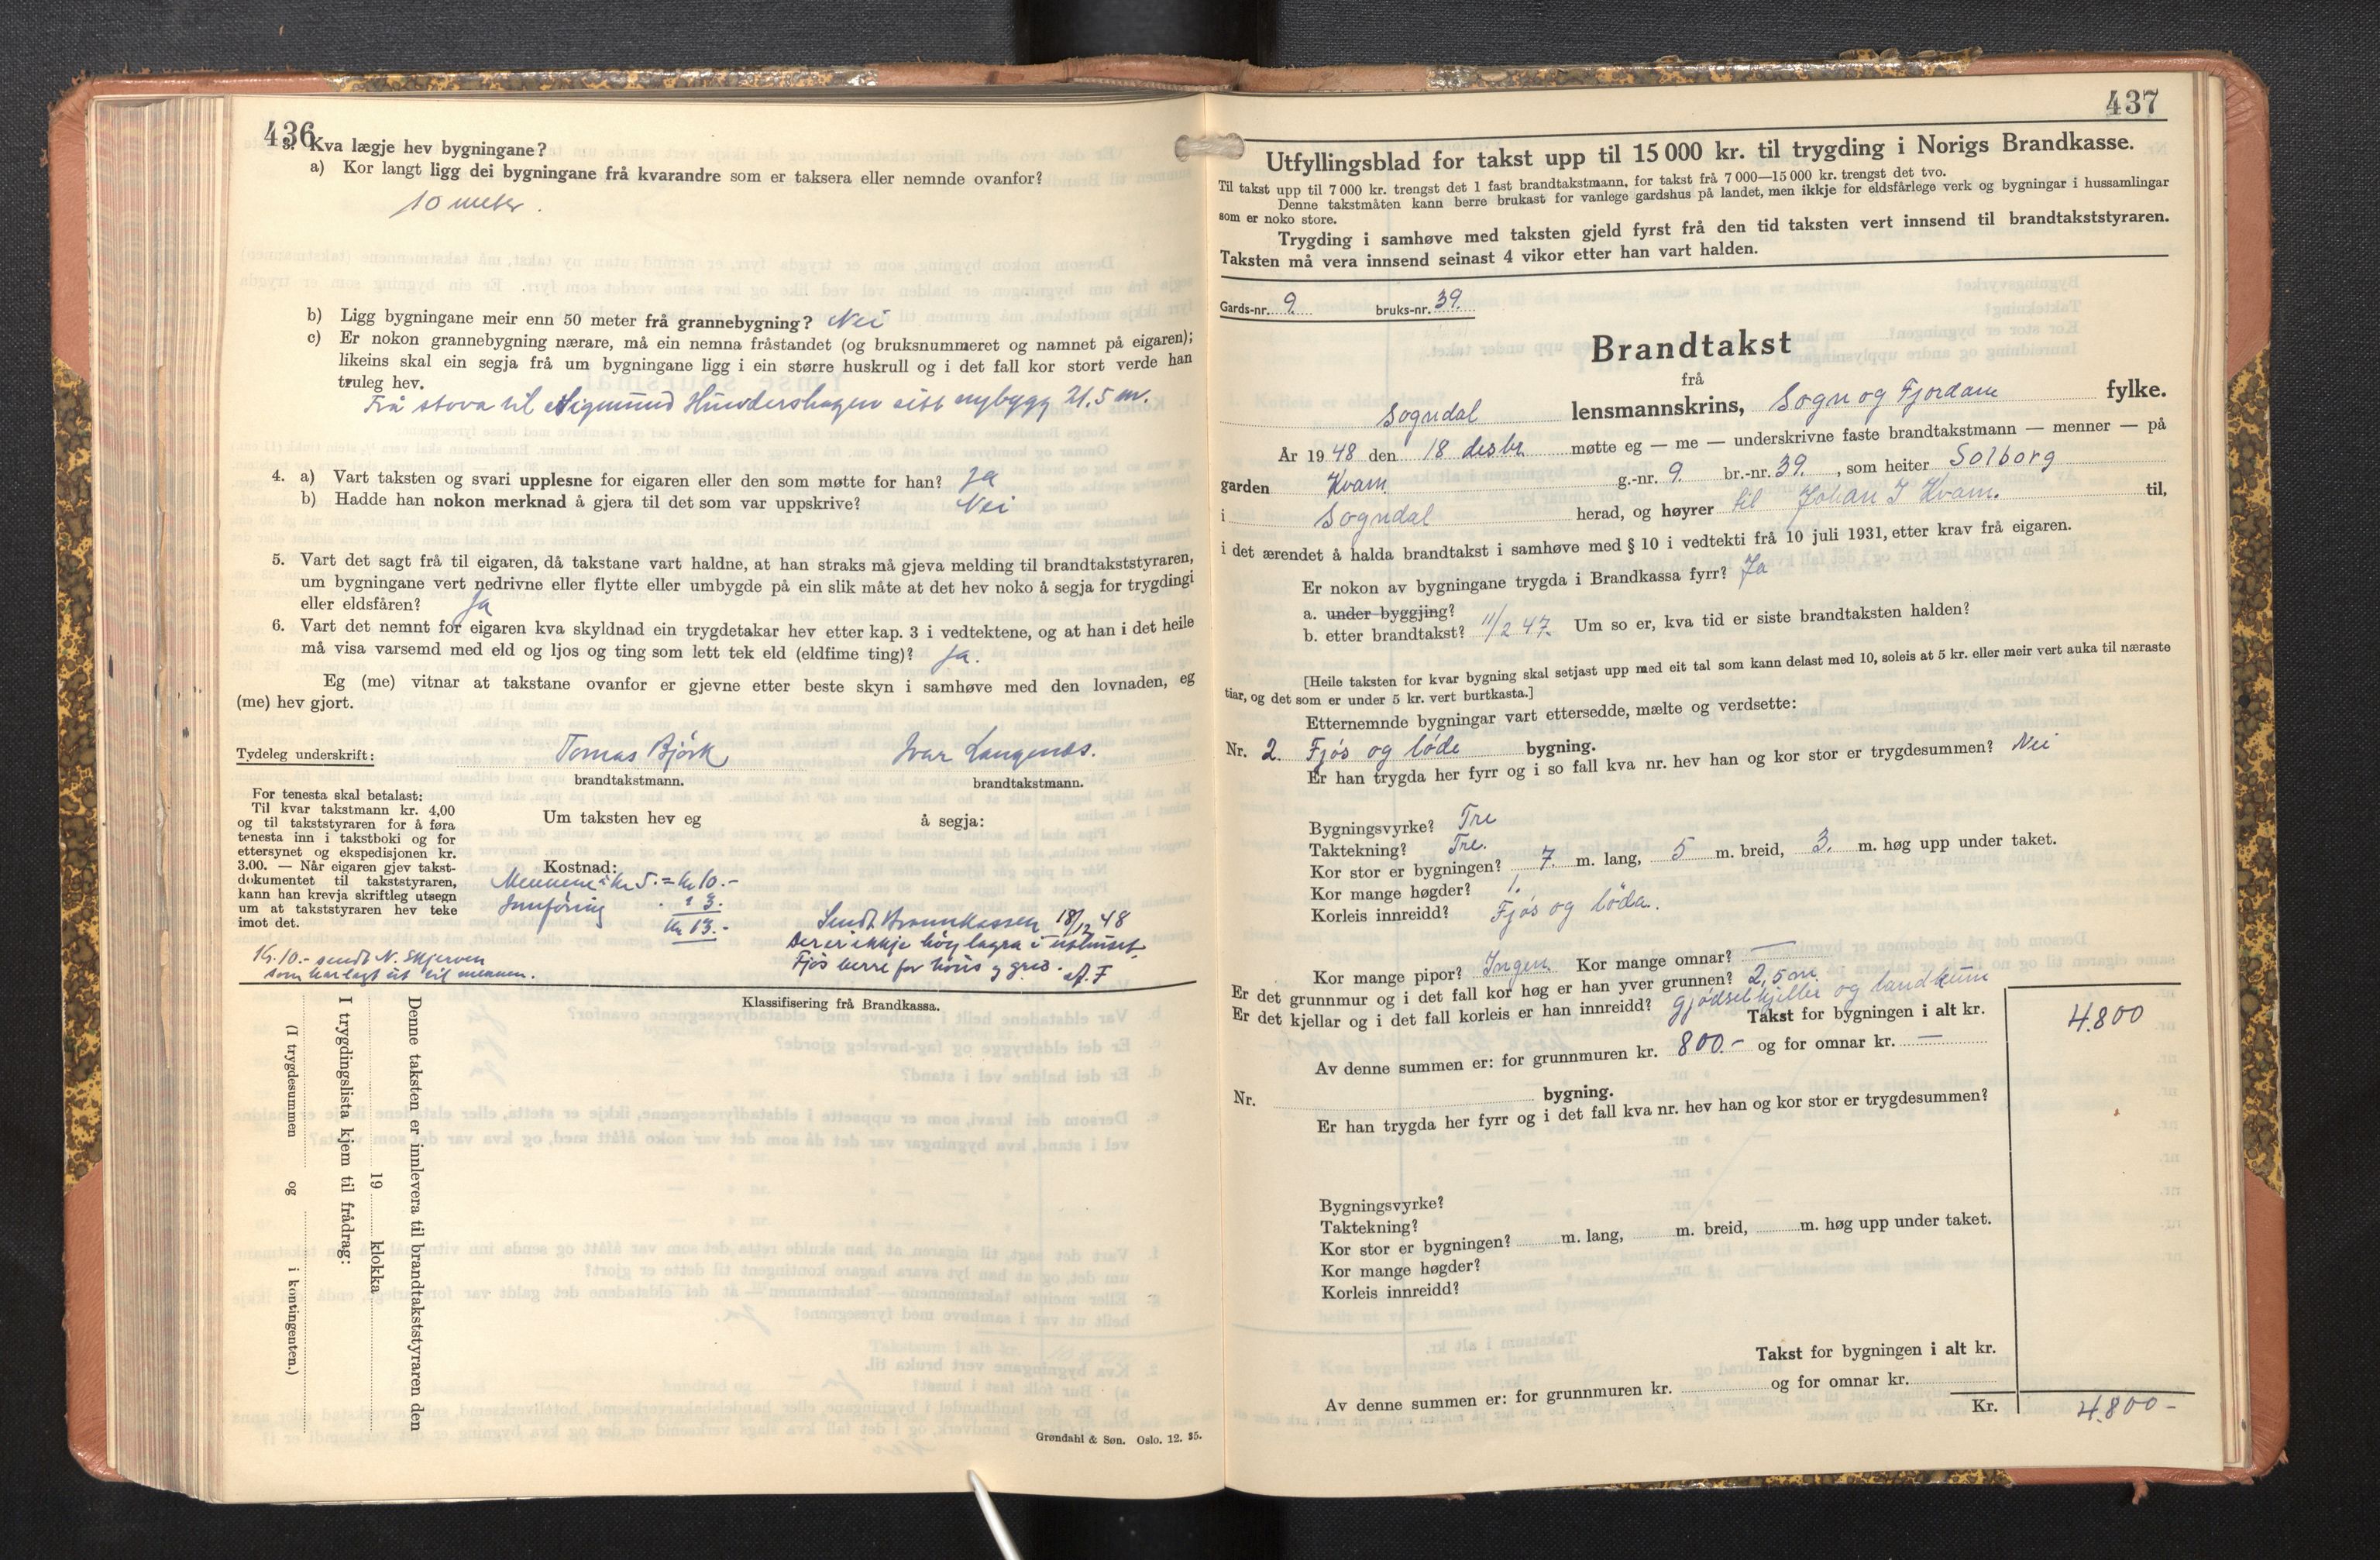 436
3. Kva lægje hev bygningane?
a) Kor langt ligg dei bygningane frå kvarandre som er taksera eller nemnde ovanfor?
10 meter.
b) Ligg bygningane meir enn 50 meter frå grannebygning? Nei
c) Er nokon grannebygning nærare, må ein nemna fråstandet (og bruksnummeret og namnet på eigaren);
likeins skal ein segja frå um bygningane ligg i ein større huskrull og i det fall kor stort verde han
truleg hev.
Frå stova til Sigmund Hundershagen sitt nybygg 21.5 m.
4. a) Vart taksten og svari upplesne for eigaren eller den som møtte for han? Ja
b) Hadde han nokon merknad å gjera til det som var uppskrive? Nei
5. Vart det sagt frå til eigaren, då takstane vart haldne, at han straks må gjeva melding til brandtakststyraren,
um bygningane vert nedrivne eller flytte eller umbygde på ein slik måte at det hev noko å segja for trygdingi
eller eldsfåren? Ja
6. Vart det nemnt for eigaren kva skyldnad ein trygdetakar hev etter kap. 3 i vedtektene, og at han i det heile
må visa varsemd med eld og ljos og ting som lett tek eld (eldfime ting)? Ja.
Eg (me) vitnar at takstane ovanfor er gjevne etter beste skyn i samhøve med den lovnaden, eg
(me) hev gjort.
Tydeleg underskrift: Tomas Bjørk Ivar Langenes.
brandtakstmann. brandtakstmann.
For tenesta skal betalast:
Til kvar takstmann kr. 4,00
og til takststyraren for å føra
tenesta inn i takstboki og for
ettersynet og ekspedisjonen kr.
3.00. — Når eigaren gjev takst-
dokumentet til takststyraren,
kann han krevja skriftleg utsegn
um at takststyraren hev teke
imot det.
Um taksten hev eg å segja:
Kostnad:
Mennene à kr 5. = kr 10.-
Innføring " 3.
kr 13.-
Sendt Brannkassen 18/12 48
Der er ikkje høy lagra i uthuset.
Fjøs berre for høns og gris. af. F
Kr. 10.- sendt N. Skjerven
som har lagt ut til mennen.
Klassifisering frå Brandkassa.
Denne taksten er innlevera til brandtakststyraren den
19 klokka
I trygdingslista kjem til frådrag:
(I trygdesummen og i kontingenten.)
Grøndahl & Søn. Oslo. 12. 35.
437
Utfyllingsblad for takst upp til 15 000 kr. til trygding i Norigs Brandkasse.
Til takst upp til 7 000 kr. trengst det 1 fast brandtakstmann, for takst frå 7 000—15 000 kr. trengst det tvo.
Denne takstmåten kann berre brukast for vanlege gardshus på landet, men ikkje for eldsfårlege verk og bygningar i hussamlingar
som er noko store.
Trygding i samhøve med taksten gjeld fyrst frå den tid taksten vert innsend til brandtakststyraren.
Taksten må vera innsend seinast 4 vikor etter han vart halden.
Gards-nr. 9. bruks-nr. 39.
Brandtakst
frå
Sogndal lensmannskrins, Sogn og Fjordane fylke.
År 1948 den 18 desbr. møtte eg — me — underskrivne faste brandtakstmann — menner — på
garden Kvam g.-nr. 9. br.-nr. 39. , som heiter Solborg
i Sogndal herad, og høyrer til Johan I Kvam. til,
i det ærendet å halda brandtakst i samhøve med § 10 i vedtekti frå 10 juli 1931, etter krav frå eigaren.
Er nokon av bygningane trygda i Brandkassa fyrr? Ja
a. under byggjing?
b. etter brandtakst? 11/2 47. Um so er, kva tid er siste brandtaksten halden?
[Heile taksten for kvar bygning skal setjast upp med eit tal som kann delast med 10, soleis at 5 kr. eller meir vert auka til næraste
tiar, og det som er under 5 kr. vert burtkasta.]
Etternemnde bygningar vart ettersedde, mælte og verdsette:
Nr. 2. Fjøs og løde bygning.
Er han trygda her fyrr og i so fall kva nr. hev han og kor stor er trygdesummen? Nei
Bygningsvyrke? Tre
Taktekning? Tre.
Kor stor er bygningen? 7. m. lang, 5 m. breid, 3. m. høg upp under taket.
Kor mange høgder? 1.
Korleis innreidd? Fjøs og løda.
Kor mange pipor? Ingen Kor mange omnar? —
Er det grunnmur og i det fall kor høg er han yver grunnen? 2,5 m
Er det kjellar og i det fall korleis er han innreidd? gjødselkjeller og landkum
Takst for bygningen i alt kr. 4.800
Av denne summen er: for grunnmuren kr. 800.- og for omnar kr. —
Nr. bygning.
Er han trygda her fyrr og i det fall kva nr. hev han og kor stor er trygdesummen?
Bygningsvyrke?
Taktekning?
Kor stor er bygningen? m. lang, m. breid, m. høg upp under taket.
Kor mange høgder?
Korleis innreidd?
Takst for bygningen i alt kr.
Av denne summen er: for grunnmuren kr. og for omnar kr.
Kr. 4.800-